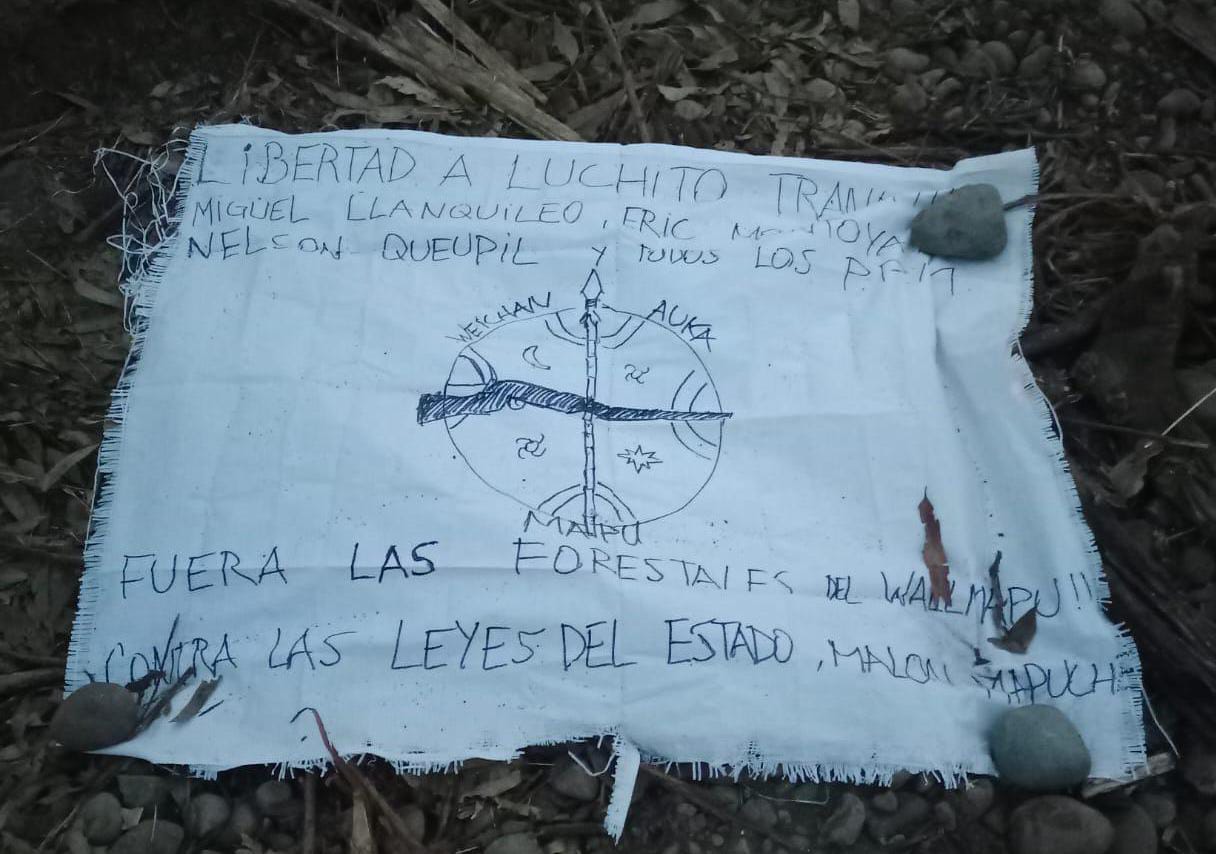 LIBERTAD A LUCHITO
MIGUEL LLANQUILEO, ERIC
NELSON QUEUPIL Y TODOS LOS
WEICHAN AUKA
MAIPU
FUERA LAS FORESTALES DEL WALLMAPU!!
CONTRA LAS LEYES DEL ESTADO, MALON MAPUCH